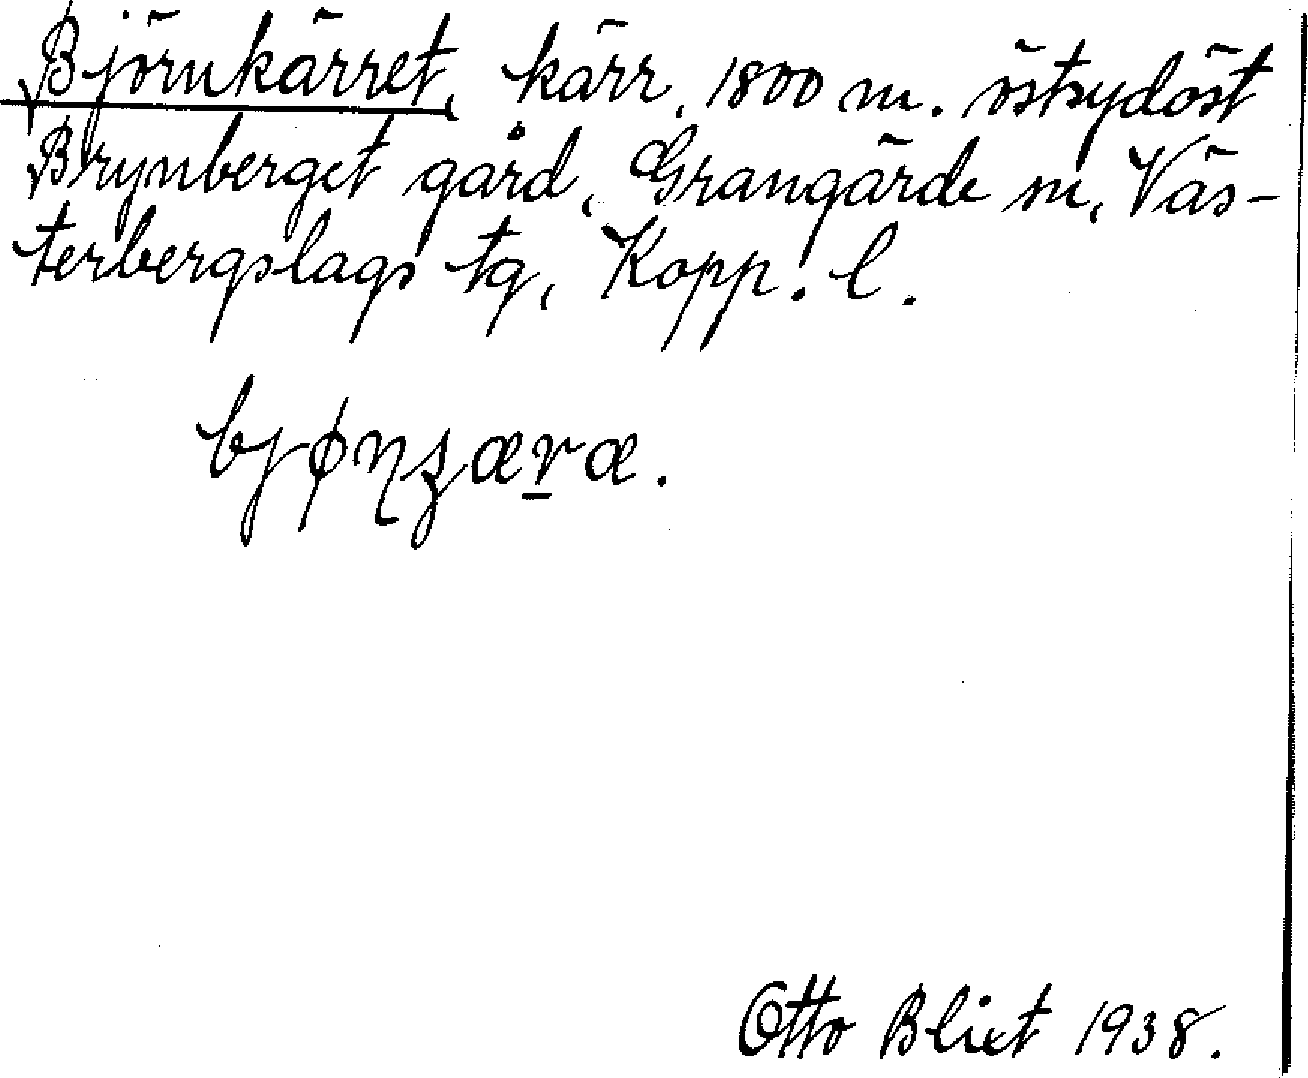 Björnkärret, kärr, 1800 m. östsydöst
Brynberget gård, Grangärde sn, Väs-
terbergslags tg, Kopp. l.
bjønʒæræ.
Otto Blixt 1938.